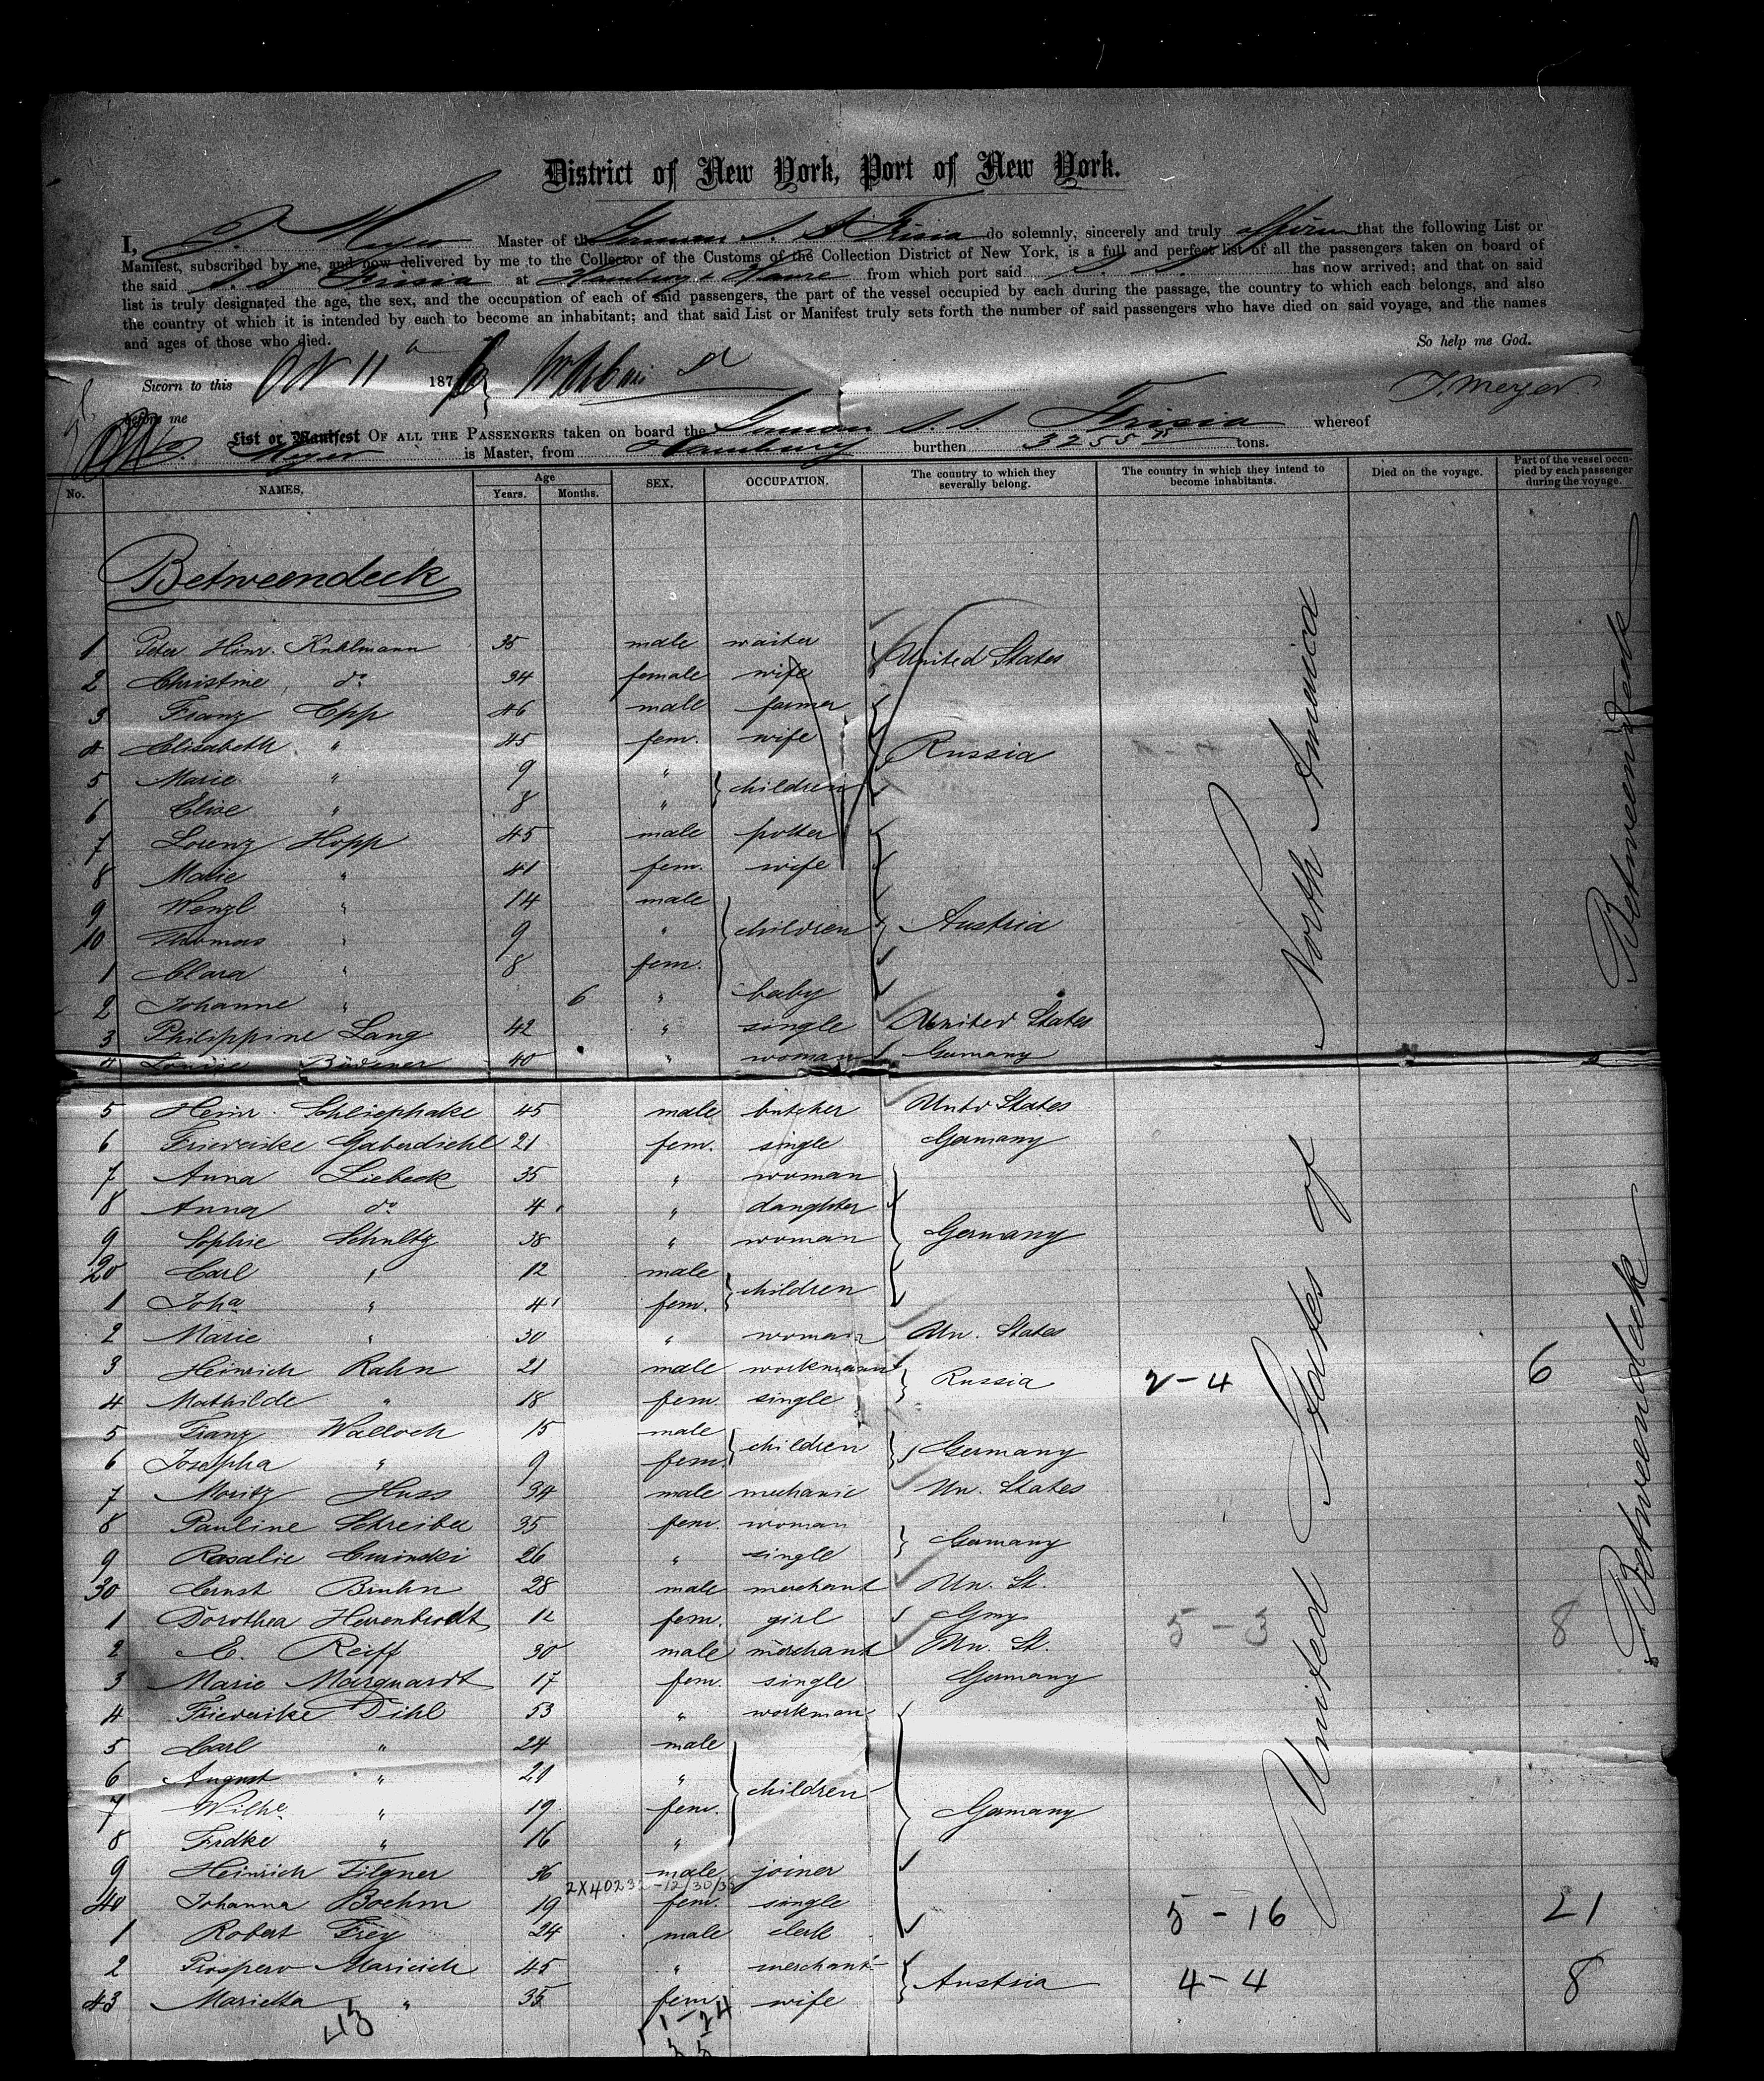 District of New York, Port of New York.
I, J. Meyer Master of the German S. S. Frisia do solemnly, sincerely and truly affirm that the following List or
Manifest, subscribed by me, and now delivered by me to the Collector of the Customs of the Collection District of New York, is a full and perfect list of all the passengers taken on board of
the said S. S. Frisia at Hamburg & Havre from which port said S. S. has now arrived; and that on said
list is truly designated the age, the sex, and the occupation of each of said passengers, the part of the vessel occupied by each during the passage, the country to which each belongs, and also
the country of which it is intended by each to become an inhabitant; and that said List or Manifest truly sets forth the number of said passengers who have died on said voyage, and the names
and ages of those who died. So help me God.
Sworn to this Oct 11th 1876 J. Meyer
before me
List or Manifest OF ALL THE PASSENGERS taken on board the German S. S. Frisia whereof
Meyer is Master, from Hamburg burthen 3255 tons.
No. NAMES. Age Years. Months. SEX. OCCUPATION. The country to which they severally belong. The country in which they intend to become inhabitants. Died on the voyage. Part of the vessel occupied by each passenger during the voyage.
Betweendeck
1 Peter Hinr. Kuhlmann 35 male waiter United States
2 Christine do 34 female wife
3 Franz Epp 46 male farmer
4 Elisabeth " 45 fem. wife Russia
5 Marie " 9 " children
6 Elise " 8 "
7 Lorenz Hopp 45 male potter
8 Marie " 41 fem. wife
9 Wenzl " 14 male
10 Thomas " 9 " children Austria
1 Clara " 8 fem.
2 Johanne " 6 " baby
3 Philippine Lang 42 " single United States
4 Louise Büdener 40 " woman Germany
5 Heinr. Schliephake 45 male butcher Untd States
6 Friederike Gaberdiehl 21 fem. single Germany
7 Anna Liebeck 35 " woman
8 Anna do 4 " daughter
9 Sophie Schultz 38 " woman Germany
20 Carl " 12 male children
1 Joha " 4 fem.
2 Marie " 30 " woman Un. States
3 Heinrich Rahn 21 male workman Russia 2-4 6
4 Mathilde " 18 fem. single
5 Franz Walloch 15 male children Germany
6 Josepha " 9 fem.
7 Moritz Huss 34 male mechanic Un. States
8 Pauline Schreiber 35 fem. woman Germany
9 Rosalie 26 " single
30 Ernst Bruhn 28 male merchant Un. St.
1 Dorothea 12 fem. girl Gmy 5-3 8
2 E. Reiff 30 male merchant Un. St.
3 Marie Marquardt 17 fem. single Germany
4 Friederike Dihl 53 " workman
5 Carl " 24 male
6 August " 21 " children
7 Wilhe " 19 fem. Germany
8 Frdke " 16 "
9 Heinrich Filgner 36 male joiner
2X40232-12/30/35
40 Johanna Boehm 19 fem. single 5-16 21
1 Robert Frey 24 male clerk
2 Prospero Maricich 45 " merchant Austria 4-4 8
43 Marietta " 35 fem. wife
43
1-24
35
United States of North America
Betweendeck
Betweendeck